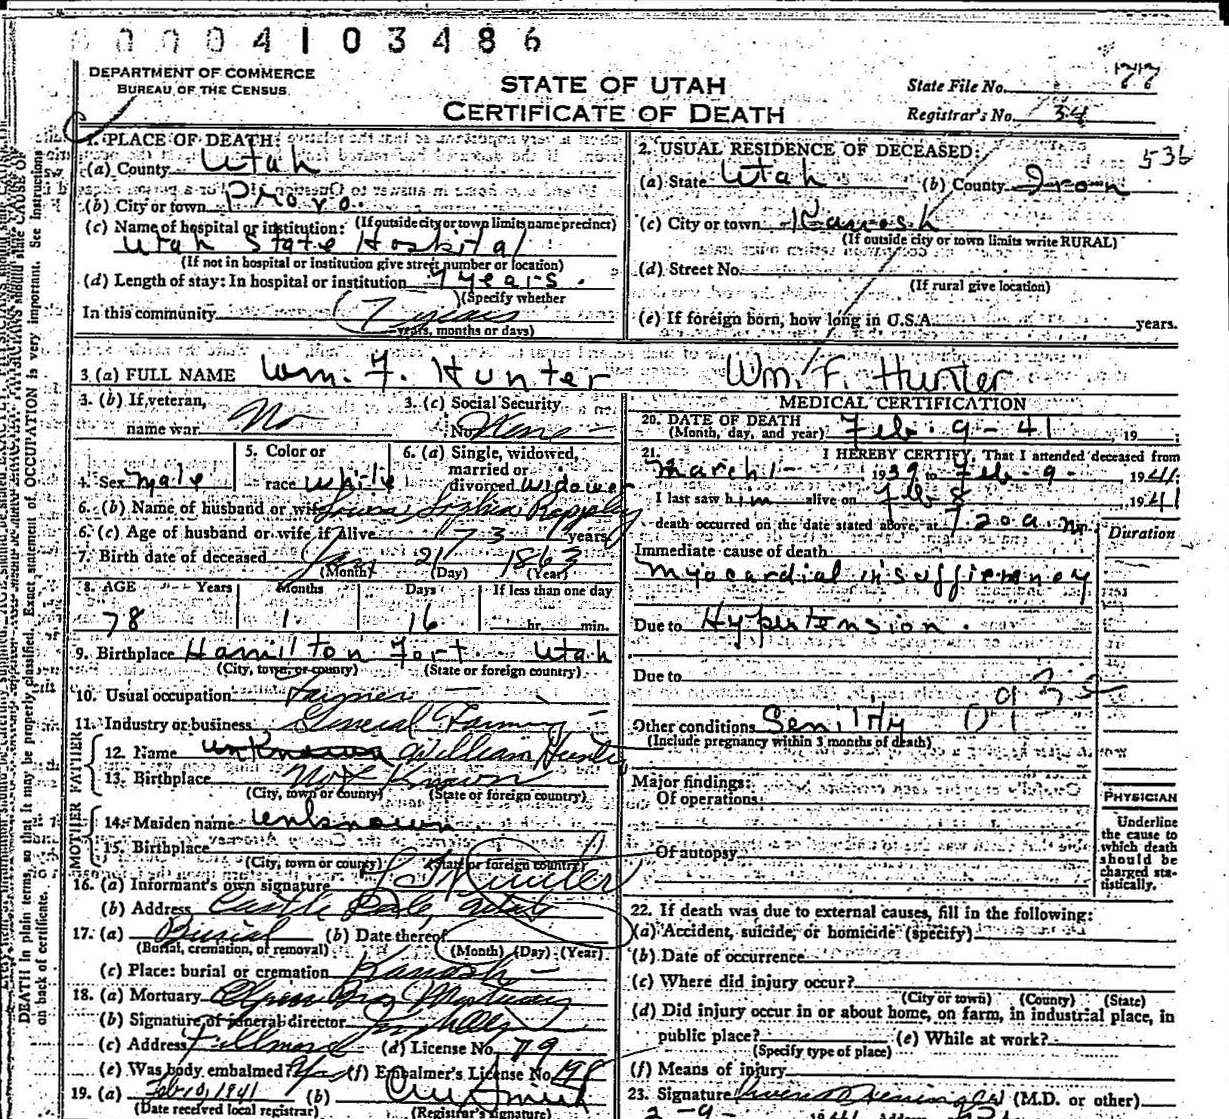 00004103486
DEPARTMENT OF COMMERCE
BUREAU OF THE CENSUS
STATE OF UTAH
CERTIFICATE OF DEATH
State File No. 77
Registrar's No. 34
1. PLACE OF DEATH:
(a) County Utah
(b) City or town Provo.
(If outside city or town limits name precinct)
(c) Name of hospital or institution:
Utah State Hospital
(If not in hospital or institution give street number or location)
(d) Length of stay: In hospital or institution 7 years.
(Specify whether
In this community 7 years
years, months or days)
2. USUAL RESIDENCE OF DECEASED: 536
(a) State Utah (b) County Iron
(c) City or town Kanosh
(If outside city or town limits write RURAL)
(d) Street No.
(If rural give location)
(e) If foreign born, how long in U.S.A. years.
3 (a) FULL NAME Wm. F. Hunter Wm. F. Hunter
3. (b) If veteran,
name war No
3. (c) Social Security
No. None
4. Sex Male
5. Color or
race white
6. (a) Single, widowed,
married or
divorced widower
6. (b) Name of husband or wife Sophia
6. (c) Age of husband or wife if alive 73 years
7. Birth date of deceased Jan 21 1863
(Month) (Day) (Year)
8. AGE Years Months Days If less than one day
78 1 16 hr. min.
9. Birthplace Hamilton Fort. Utah
(City, town, or county) (State or foreign country)
10. Usual occupation Farmer
11. Industry or business General Farming
FATHER
12. Name unknown William Hunter
13. Birthplace Not Known
(City, town or county) (State or foreign country)
MOTHER
14. Maiden name unknown.
15. Birthplace
(City, town or county) (State or foreign country)
16. (a) Informant's own signature Hunter
(b) Address Castle Dale, Utah
17. (a) Burial (b) Date thereof
(Burial, cremation, or removal) (Month) (Day) (Year)
(c) Place: burial or cremation Kanosh
18. (a) Mortuary Bros Mortuary
(b) Signature of funeral director
(c) Address Fillmore (d) License No. 79
(e) Was body embalmed? Yes (f) Embalmer's License No.
19. (a) Feb 10, 1941 (b)
(Date received local registrar) (Registrar's signature)
MEDICAL CERTIFICATION
20. DATE OF DEATH
(Month, day, and year) Feb. 9 - 41, 19
21. I HEREBY CERTIFY, That I attended deceased from
March 1 - 1939 to Feb - 9 - 1941.
I last saw him alive on Feb 8 1941
death occurred on the date stated above, at 7 20 a.m.
Duration
Immediate cause of death
Myocardial insufficiency
Due to Hypertension.
Due to
Other conditions Senility
(Include pregnancy within 3 months of death)
Major findings:
Of operations
Of autopsy
PHYSICIAN
Underline
the cause to
which death
should be
charged sta-
tistically.
22. If death was due to external causes, fill in the following:
(a) Accident, suicide, or homicide (specify)
(b) Date of occurrence
(c) Where did injury occur?
(City or town) (County) (State)
(d) Did injury occur in or about home, on farm, in industrial place, in
public place? (e) While at work?
(Specify type of place)
(f) Means of injury
23. Signature (M.D. or other)